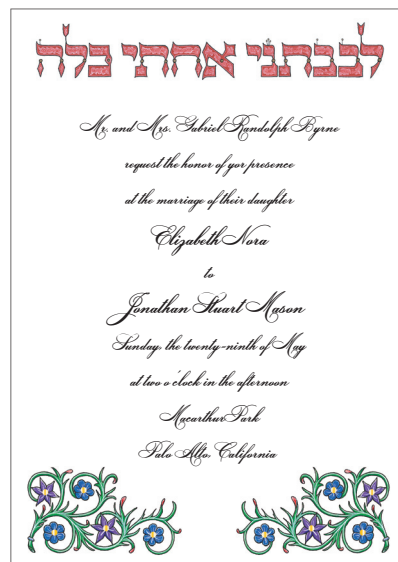 לבבתני אחתי כלה
Mr. and Mrs. Gabriel Randolph Byrne
request the honor of yor presence
at the marriage of their daughter
Elizabeth Nora
to
Jonathan Stuart Mason
Sunday, the twenty-ninth of May
at two o'clock in the afternoon
Macarthur Park
Palo Alto, California